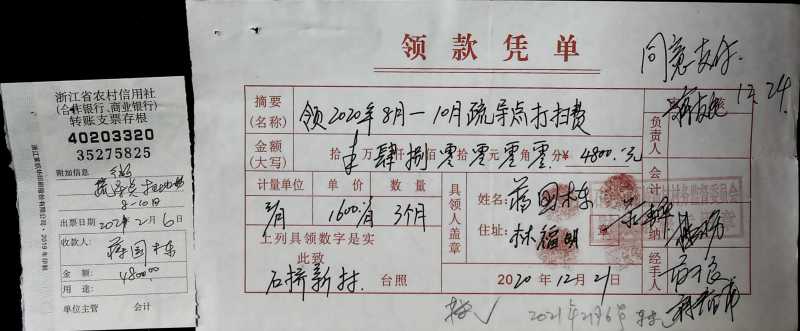 浙江省农村信用社
(合作银行、商业银行)
转账支票存根
40203320
35275825
附加信息
疏导点打扫费
8-10月
出票日期 2021年2月6日
收款人：
蒋国栋
金额：4800.00
用途：
单位主管 会计
领款凭单
同意支付.
12.24
摘要
(名称)
领2020年8月—10月疏导点打扫费
审核
负责人
金额
(大写)
拾 万肆仟捌佰零拾零元零角零分¥4800.元
计量单位 单价 数量
3/月 1600/月 3个月
上列具领数字是实
此致
石桥新村 台照
具领人盖章
姓名：蒋国栋
住址：林福明
2020年12月21日
会计
出纳
经手人
2021年2月6日